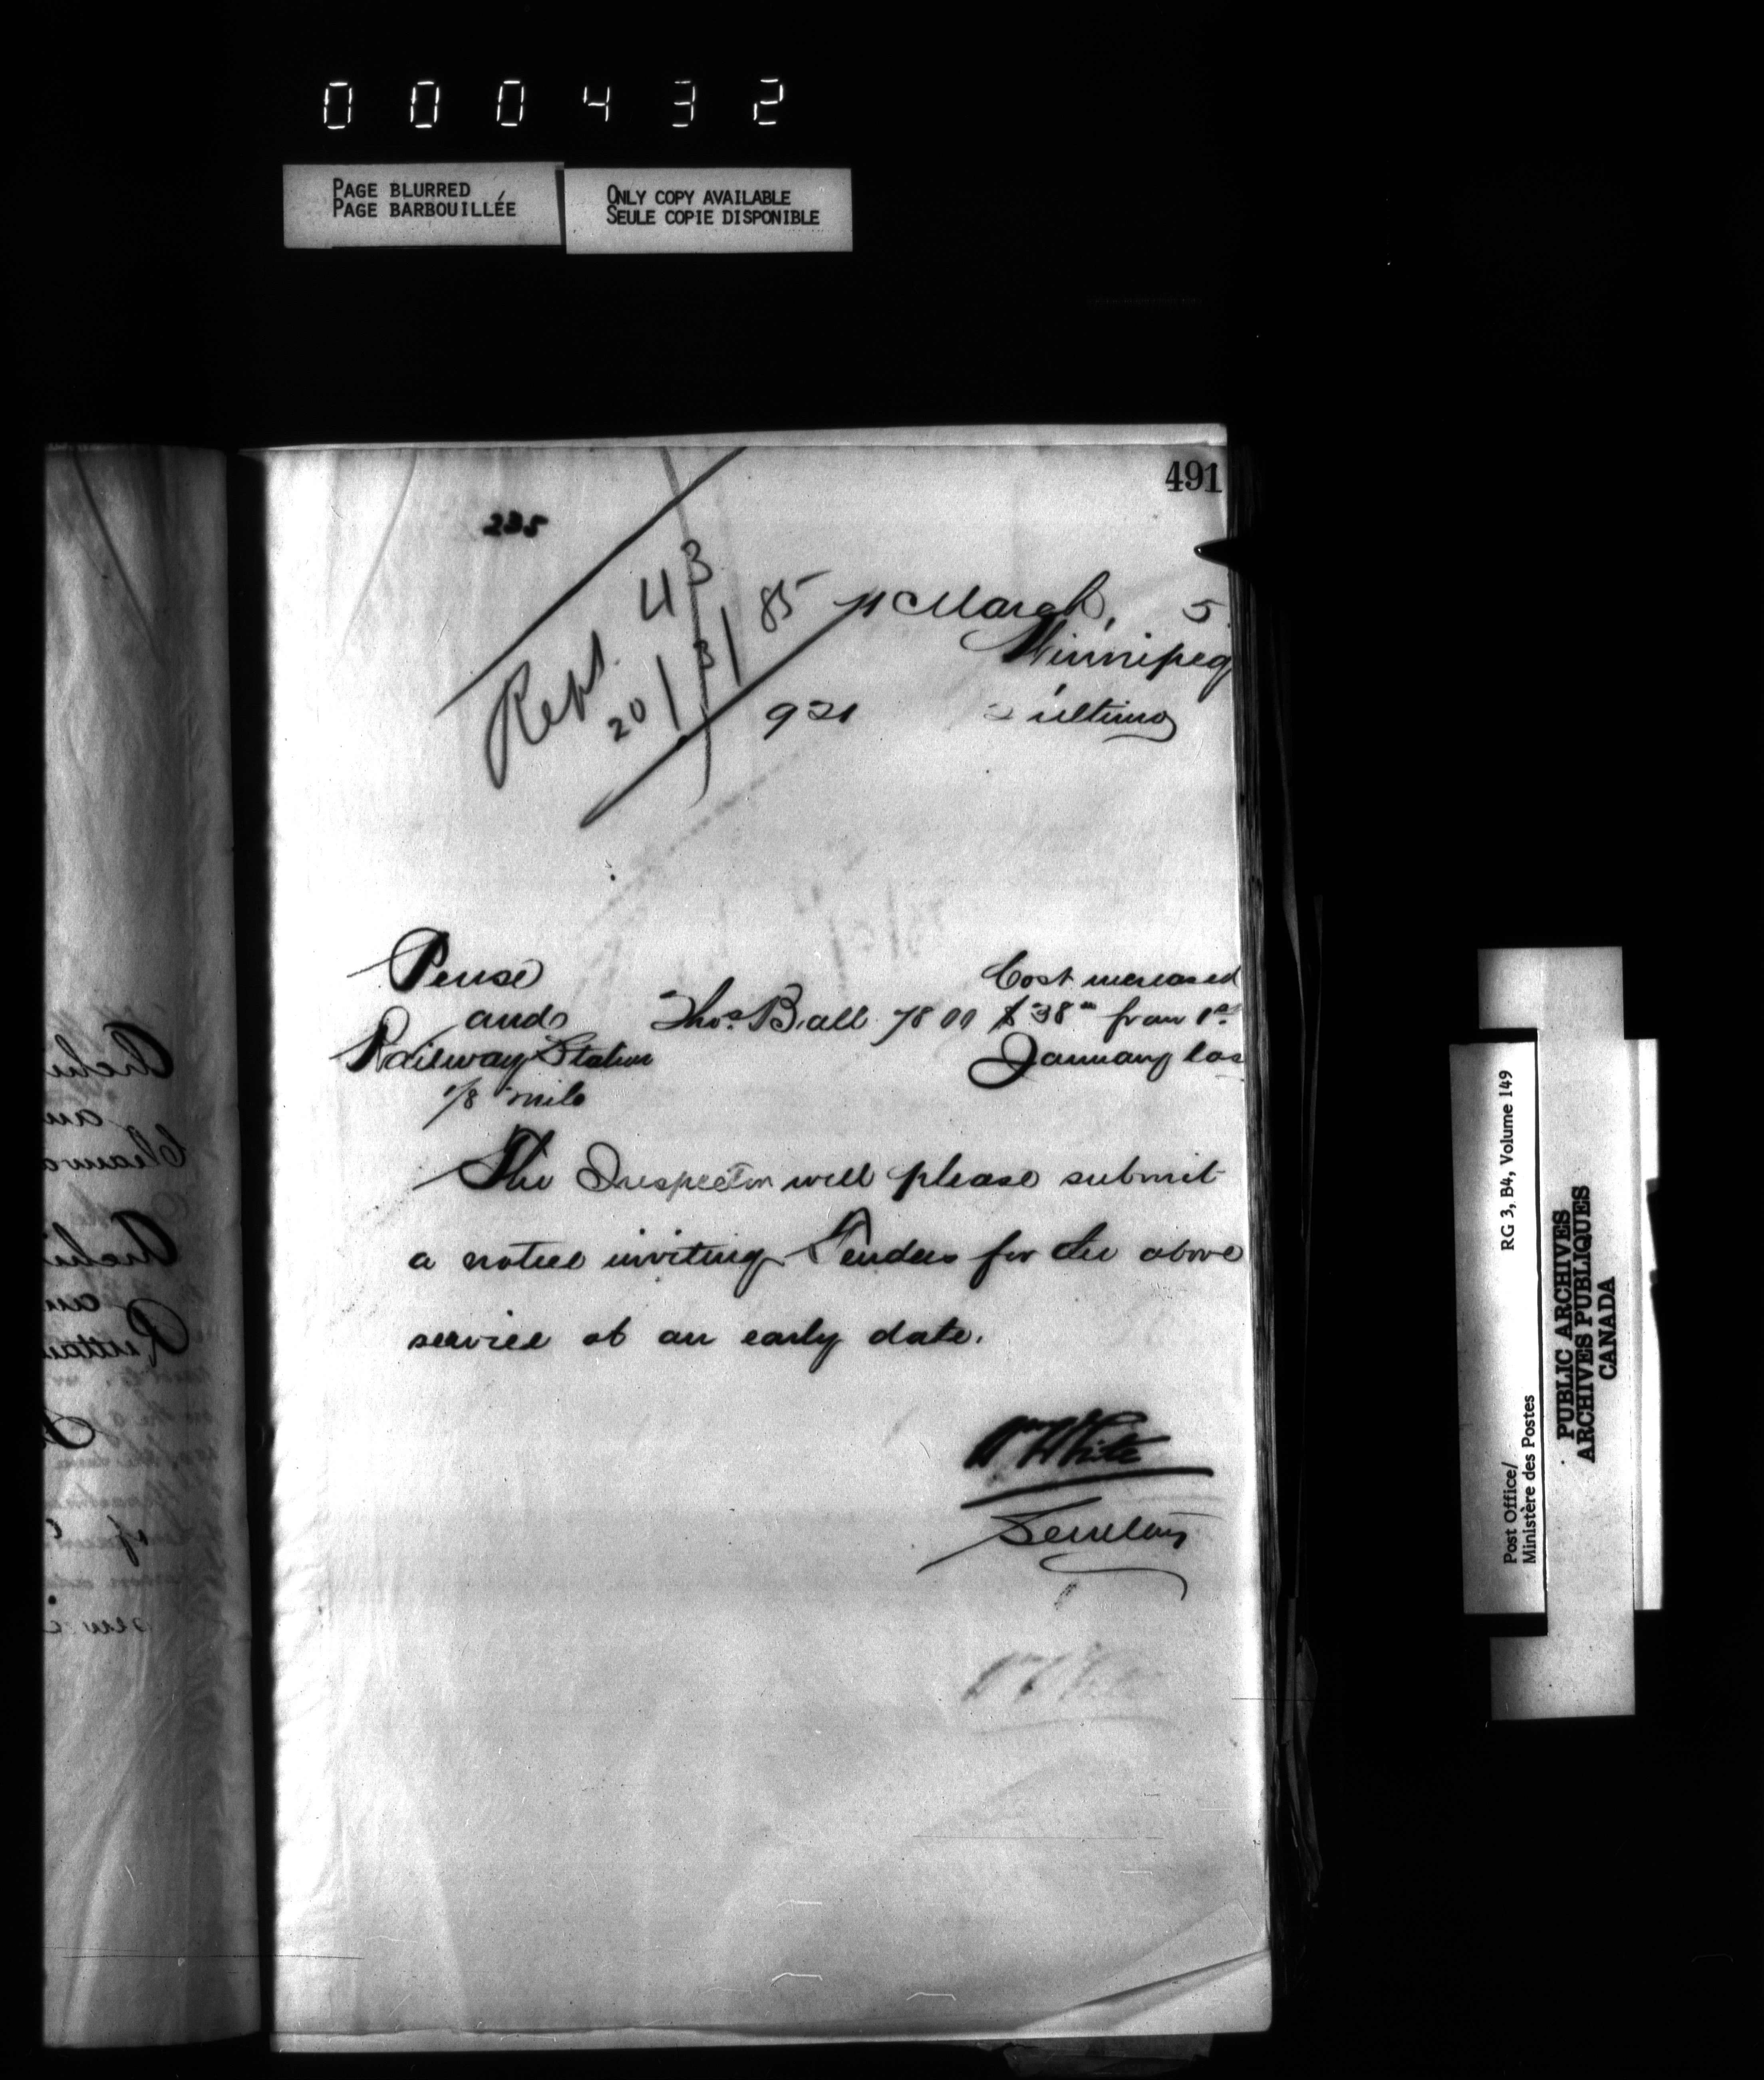 000432
PAGE BLURRED
PAGE BARBOUILLÉE
ONLY COPY AVAILABLE
SEULE COPIE DISPONIBLE
491
235
Rept. 43
20/3/85
11 March, 5
Winnipeg
921 ultimo
Pense
and
Railway Station
1/8 mile
Thos. Ball 78 00
Cost increased
$38 from 1st
January las
The Inspector will please submit
a notice inviting Tenders for the above
service at an early date.
Wm White
Secretary
Post Office/
Ministère des Postes
RG 3, B4, Volume 149
PUBLIC ARCHIVES
ARCHIVES PUBLIQUES
CANADA